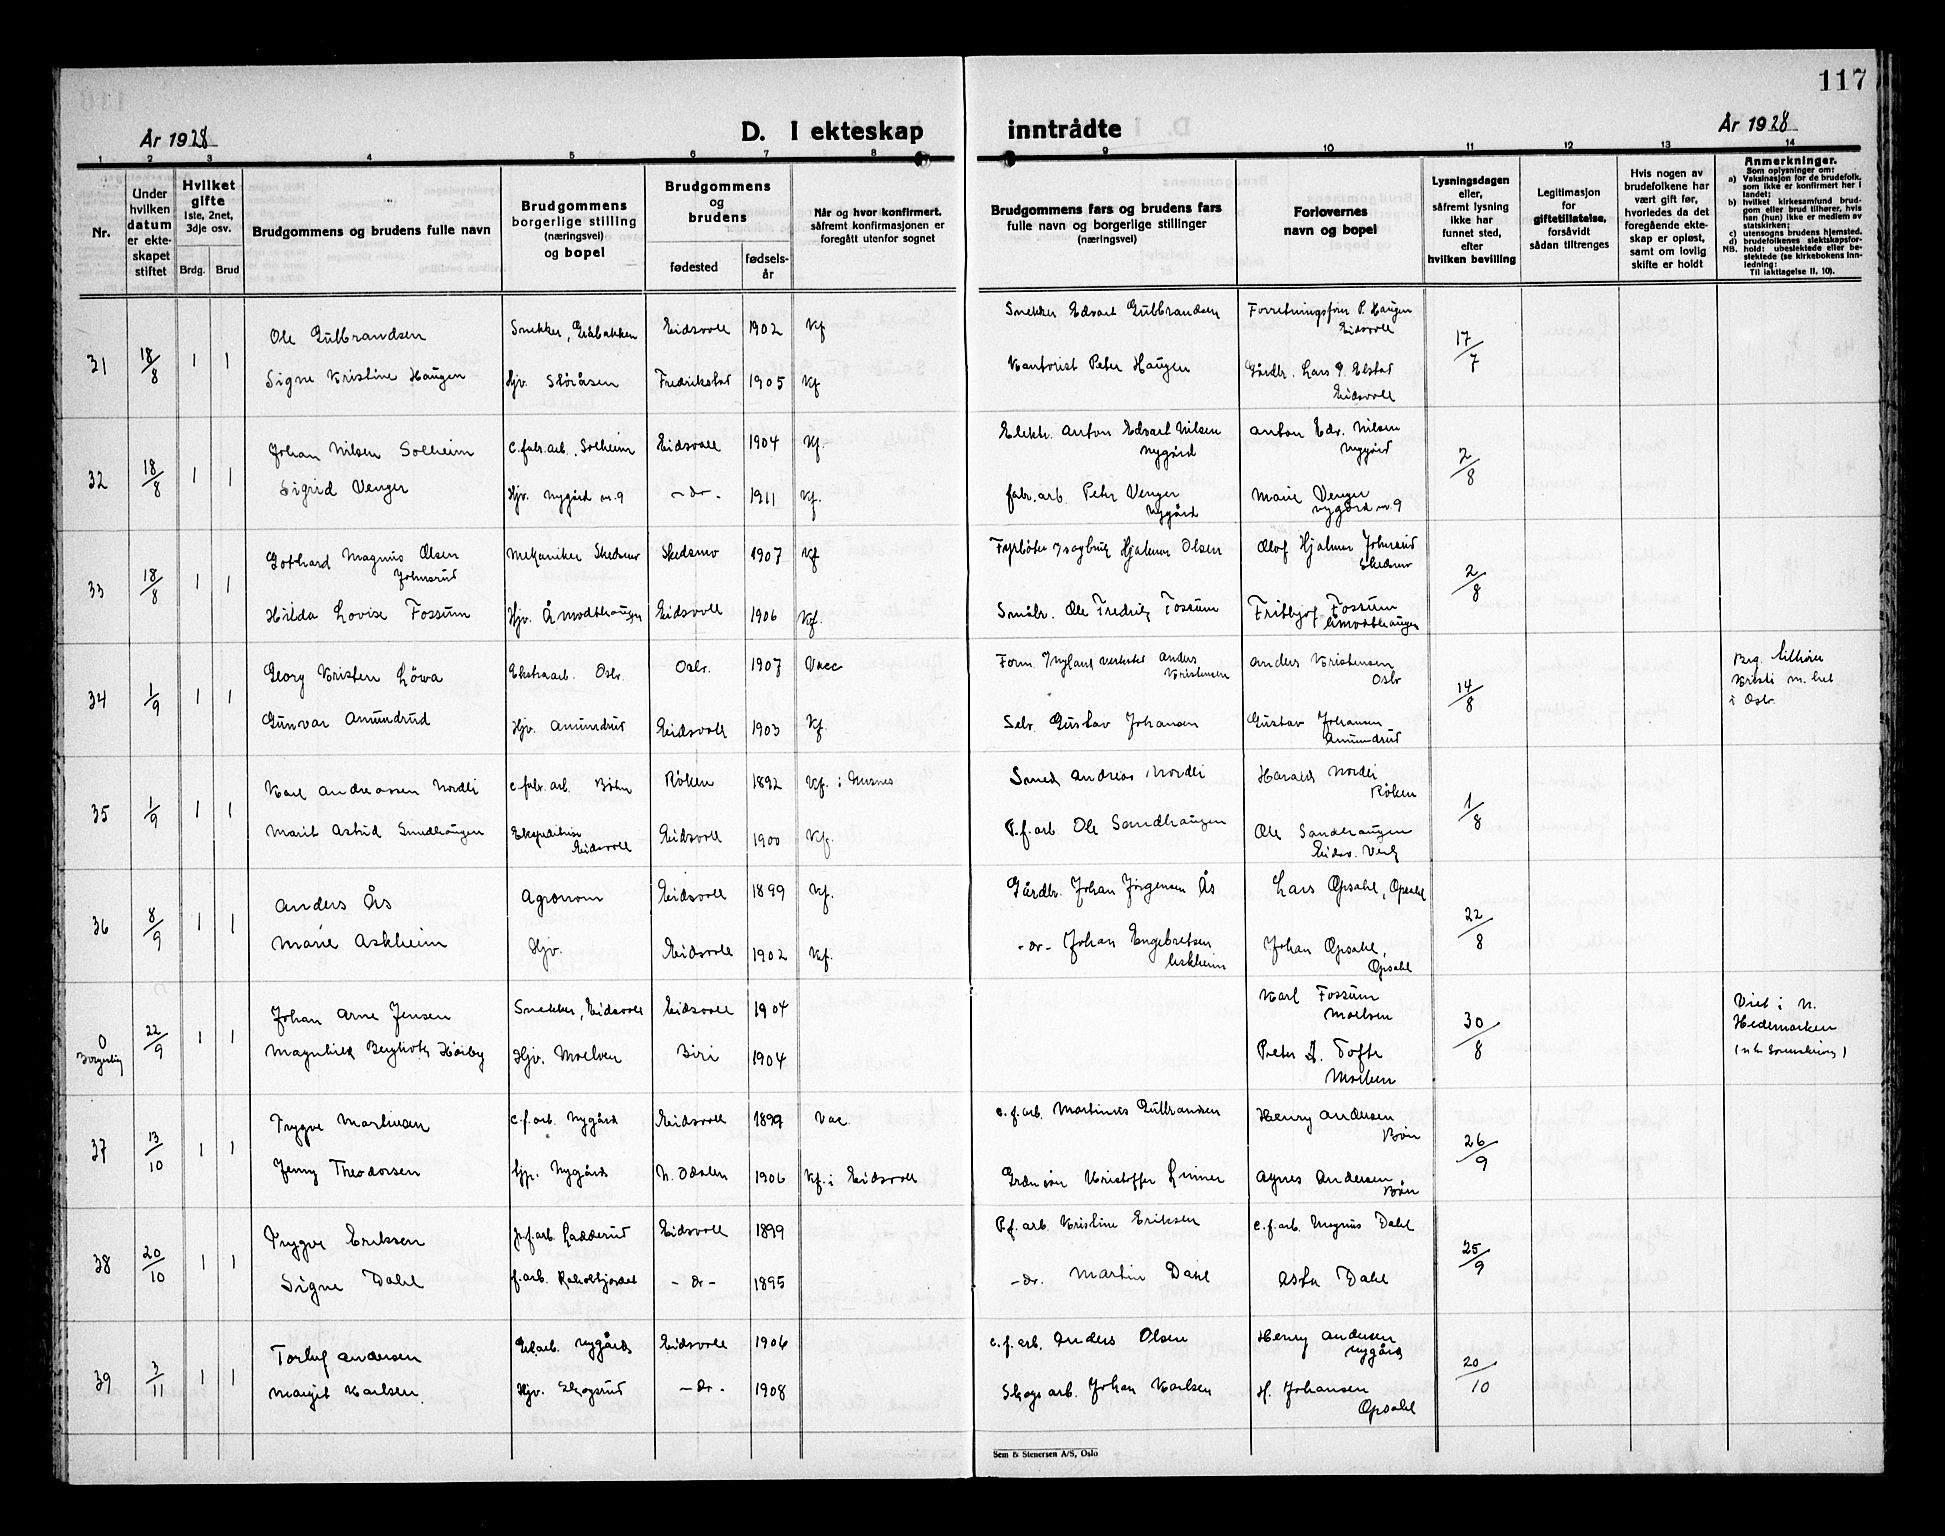 117
År 1928
D. I ekteskap inntrådte
År 1928
1 2 3 4 5 6 7 8 9 10 11 12 13 14
Nr.
Under hvilken datum er ekteskapet stiftet
Hvilket gifte
1ste, 2net, 3dje osv.
Brdg. Brud
Brudgommens og brudens fulle navn
Brudgommens borgerlige stilling (næringsvei) og bopel
Brudgommens og brudens
fødested
fødselsår
Når og hvor konfirmert. såfremt konfirmasjonen er foregått utenfor sognet
Brudgommens fars og brudens fars fulle navn og borgerlige stillinger (næringsvei)
Forlovernes navn og bopel
Lysningsdagen eller, såfremt lysning ikke har funnet sted, efter hvilken bevilling
Legitimasjon for giftetillatelse, forsåvidt sådan tiltrenges
Hvis nogen av brudefolkene har vært gift før, hvorledes da det foregående ekteskap er opløst, samt om lovlig skifte er holdt
Anmerkninger.
Som oplysninger om:
a) Vaksinasjon for de brudefolk, som ikke er konfirmert her i landet;
b) hvilket kirkesamfund brudgom eller brud tilhører, hvis han (hun) ikke er medlem av statskirken;
c) utensogns brudens hjemsted.
d) brudefolkenes slektskapsforhold: ubeslektede eller beslektede (se kirkebokens innledning:
NB. Til iakttagelse II, 10).
31 18/8 1 1 Ole Gulbrandsen Snekker, Gråbakken Eidsvoll 1902 Kf Snekker Edvart Gulbrandsen Forretningsfører P. Haugen Eidsvoll 17/7
Signe Kristine Haugen Hjv. Storåsen Fredrikstad 1905 Kf Kontorist Peter Haugen Gårdbr. Lars P. Elstad Eidsvoll
32 18/8 1 1 Johan Nilsen Solheim c.fabr.arb., Solheim Eidsvoll 1904 Kf. Elektr. Anton Edvart Nilsen Nygård Anton Edv. Nilsen Nygård 2/8
Sigrid Venger Hjv. Nygård nr. 9 -do- 1911 Kf. fabr.arb. Peter Venger Nygård Marie Venger Nygård nr. 9
33 18/8 1 1 Gotthard Magnus Olsen Johnsrud Mekaniker Skedsmo Skedsmo 1907 Kf Fyrbøter Hjalmar Olsen Olof Hjalmar Johnsrud Skedsmo 2/8
Hilda Lovise Fossum Hjv. Åmodthaugen Eidsvoll 1906 Kf. Småbr. Ole Fredrik Fossum Fritbjof Fossum Åmodthaugen
34 1/9 1 1 Georg Kristen Löwa Ekstraarb. Oslo. Oslo. 1907 Vacc Form. Myland verksted Anders Kristensen Anders Kristensen Oslo 14/8 Brg. tilhører Kristi m.het i Oslo
Gunvor Amundrud Hjv. Amundrud Eidsvoll 1903 Kf. Selv. Gustav Johansen Gustav Johansen Amundrud
35 1/9 1 1 Karl Andreassen Nordli c.fabr.arb. Bøhn Røken 1892 Kf. i Hurum Smed Andreas Nordli Harald Nordli Røken 1/8
Marit Astrid Sandhaugen Ekspeditrise Eidsvoll Eidsvoll 1900 Kf. P.f.arb Ole Sandhaugen Ole Sandhaugen Eidsv. Verk
36 8/9 1 1 Anders Ås Agronom Eidsvoll 1899 Kf. Gårdbr. Johan Jørgensen Ås Lars Opsahl, Opsahl 22/8
Marie Askheim Hjv. Eidsvoll 1902 Kf. -do- Johan Engebretsen Askheim Johan Opsahl, Opsahl
0 Borgerlig 22/9 1 1 Johan Arne Jensen Snekker, Eidsvoll Eidsvoll 1904 Karl Fossum Moelven 30/8 Viet i N. Hedemarken
Magnhild Hjv. Moelven Biri 1904 Peter A. Tofte Moelven
37 13/10 1 1 Trygve Martinsen c.f.arb. Nygård Eidsvoll 1899 Vac. c.f.arb. Martinus Gulbrandsen Henry Andersen Bøn 26/9
Jenny Theodorsen Hjv. Nygård N. Odalen 1906 Kf. i Eidsvoll Kristoffer Agnes Andersen Bøn
38 20/10 1 1 Trygve Eriksen p.f.arb. Ladderud Eidsvoll 1899 P.f. arb. Kristine Eriksen c.f. arb. Magnus Dahl 25/9
Signe Dahl f.arb. Råholtjordet -do- 1895 -do. Martin Dahl Asta Dahl
39 3/11 1 1 Torluf Andersen arb. Nygård Eidsvoll 1906 c.f. arb. Anders Olsen Henry Andersen Nygård 20/10
Margit Karlsen. Hjv. Skogsrud -do- 1908 Skogsarb. Johan Karlsen H. Johansen Opsahl
Sem & Stenersen A/S, Oslo